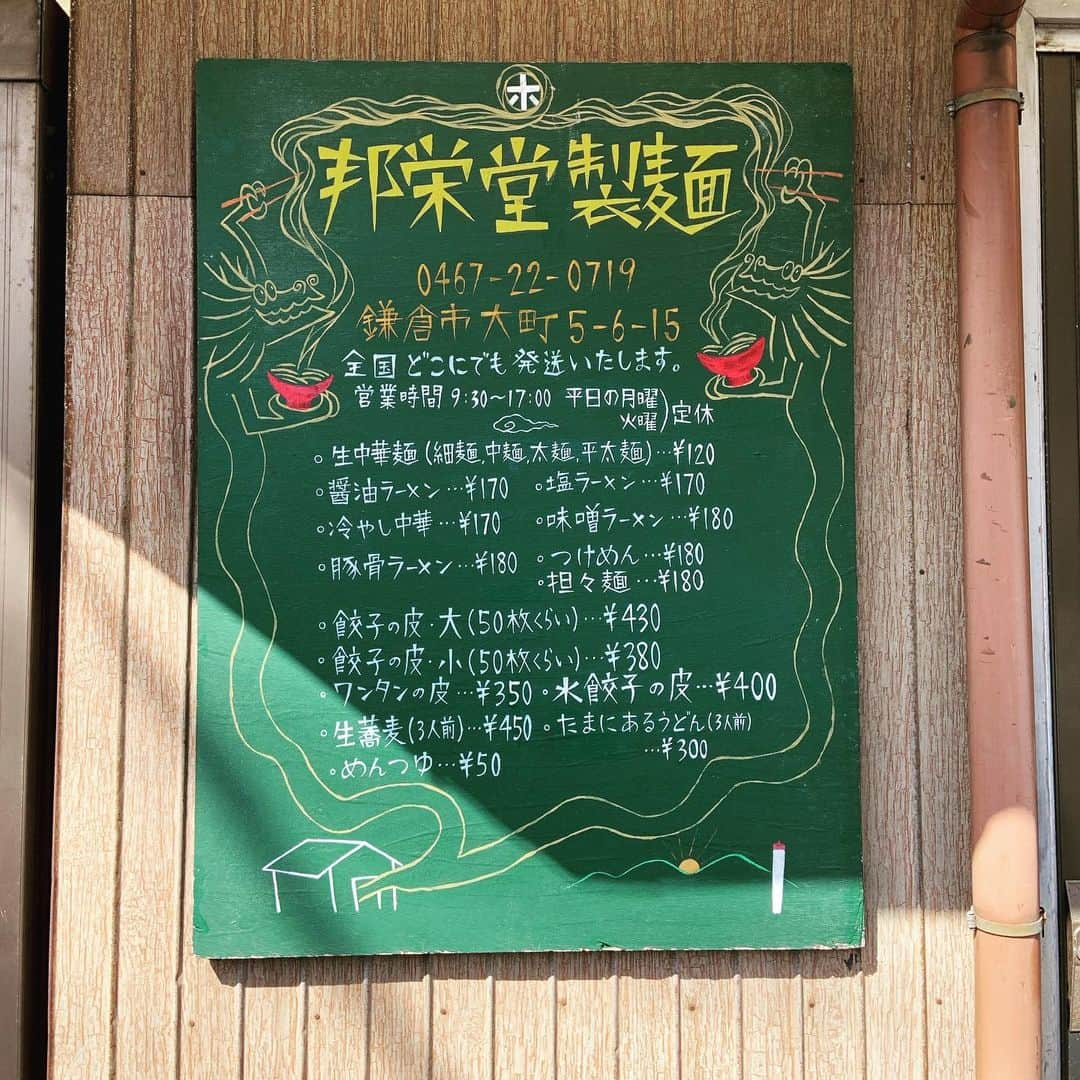 ホ
邦栄堂製麺
0467-22-0719
鎌倉市大町5-6-15
全国どこにでも発送いたします。
営業時間 9:30〜17:00 平日の月曜 火曜)定休
。生中華麺(細麺,中麺,太麺,平太麺)…¥120
。醤油ラーメン…¥170 。塩ラーメン…¥170
。冷やし中華…¥170 。味噌ラーメン…¥180
。豚骨ラーメン…¥180 。つけめん…¥180
。担々麺…¥180
。餃子の皮・大(50枚くらい)…¥430
。餃子の皮・小(50枚くらい)…¥380
。ワンタンの皮…¥350 。水餃子の皮…¥400
。生蕎麦(3人前)…¥450 。たまにあるうどん(3人前)
…¥300
。めんつゆ…¥50